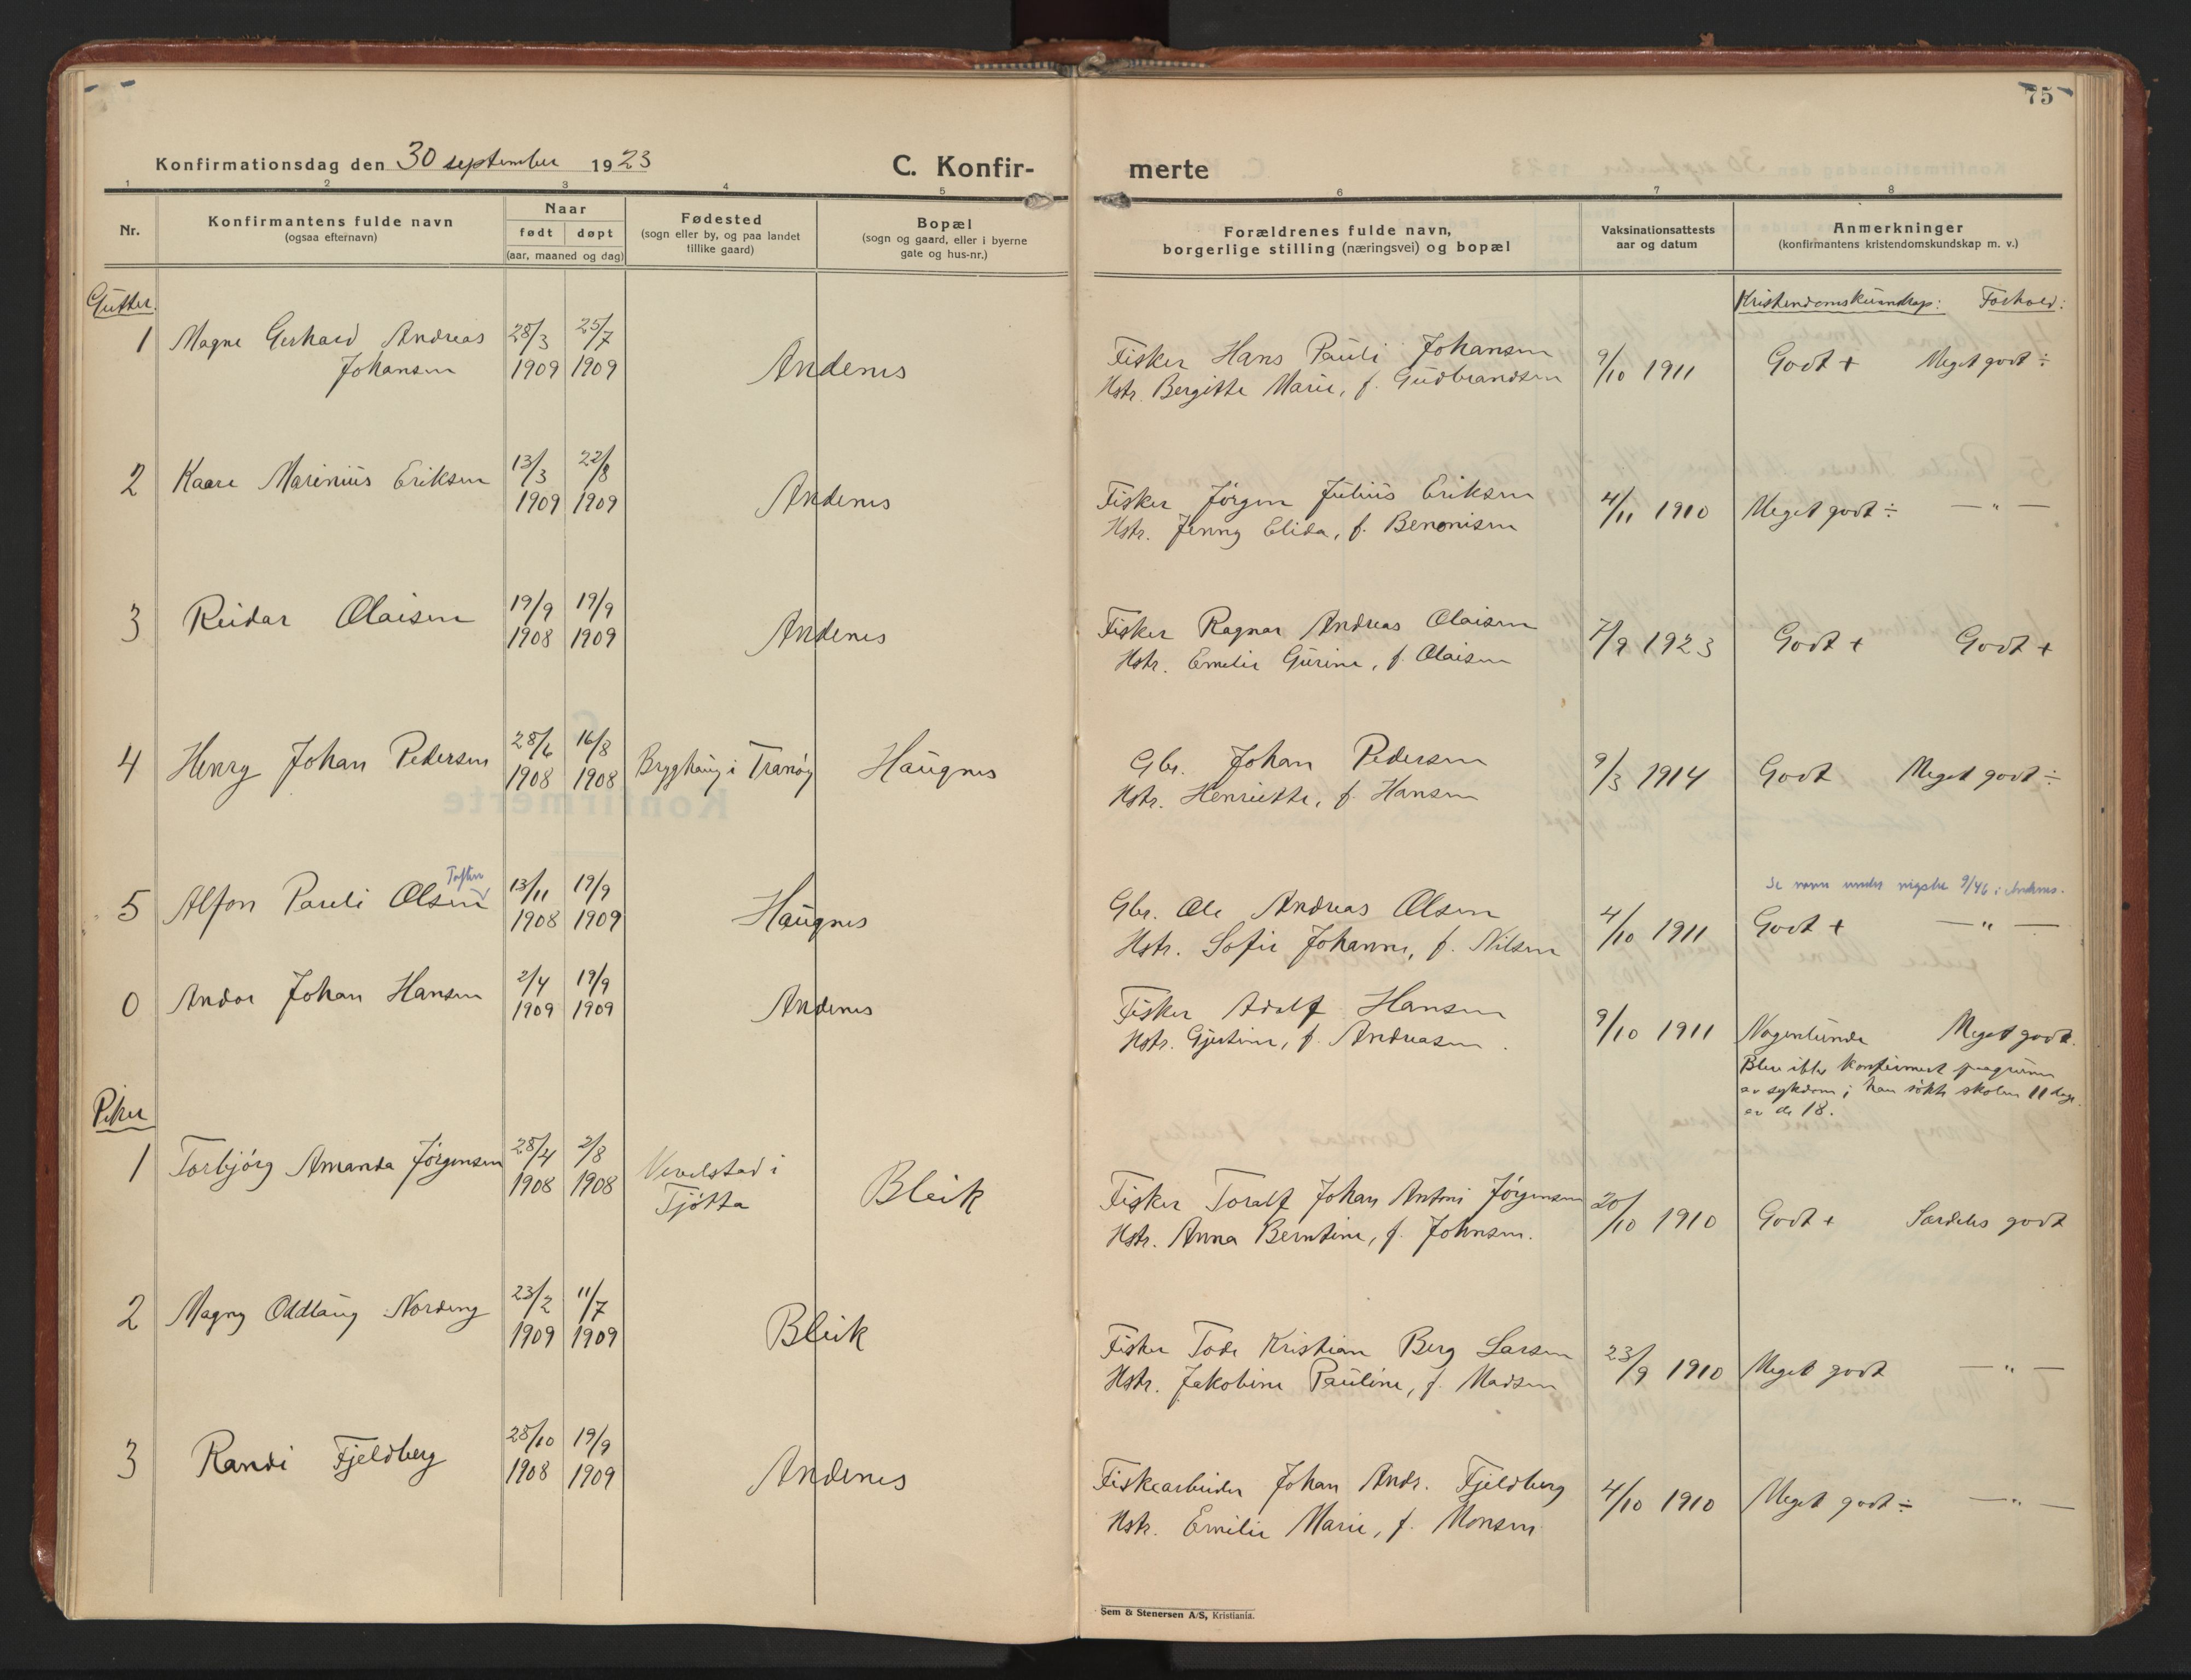 75
Konfirmationsdag den 30 september 1923
C. Konfirmerte
1 2 3 4 5 6 7 8
Nr.
Konfirmantens fulde navn
(ogsaa efternavn)
Naar
født døpt
(aar, maaned og dag)
Fødested
(sogn eller by, og paa landet
tillike gaard)
Bopæl
(sogn og gaard, eller i byerne
gate og hus-nr.)
Forældrenes fulde navn,
borgerlige stilling (næringsvei) og bopæl
Vaksinationsattests
aar og datum
Anmerkninger
(konfirmantens kristendomskundskap m. v.)
Gutter. Kristendomskundskap: Forhold:
1 Magne Gerhard Andreas 28/3 25/7
Johansen 1909 1909 Andenes
Fisker Hans Pauli Johansen
Hstr. Bergitte Marie, f. Gudbrandsen 9/10 1911 Godt + Meget godt ÷
2 Kaare Marinius Eriksen 13/3 22/8
1909 1909 Andenes
Fisker Jørgen Julius Eriksen
Hstr. Jenny Elida, f. Benonisen 4/11 1910 Meget godt ÷ — " —
3 Reidar Olaisen 19/9 19/9
1908 1909 Andenes
Fisker Ragnar Andreas Olaisen
Hstr. Emelie Gurine, f. Olaisen 7/9 1923 Godt + Godt +
4 Henry Johan Pedersen 28/6 16/8
1908 1908 Brygghaug i Tranøy Haugnes
Gbr. Johan Pedersen
Hstr. Henriette, f. Hansen 9/3 1914 Godt Meget godt ÷
Toften
5 Alfon Pauli Olsen 13/11 19/9
1908 1909 Haugnes
Gbr. Ole Andreas Olsen
Hstr. Sofie Johanne, f. Nilsen 4/10 1911 Godt + — " —
Se navn under 9/46 i Andenes.
0 Andor Johan Hansen 2/4 19/9
1909 1909 Andenes
Fisker Adolf Hansen
Hstr. Gjertine, f. Andreasen. 9/10 1911 Nogenlunde Meget godt.
Blev ikke konfirmert paagrunn
av sykdom; han søkte skolen 11 dage
av de 18.
Piker
1 Torbjørg Amanda Jørgensen 28/4 2/8
1908 1908 Vevelstad i
Tjøtta Bleik
Fisker Toralf Johan Antoni Jørgensen
Hstr. Anna Berntine, f. Johnsen. 20/10 1910 Godt + Særdeles godt
2 Magny Oddlaug Nordeng 23/2 11/7
1909 1909 Bleik
Fisker Tode Kristian Berg Larsen
Hstr. Jakobine Pauline, f. Madsen 23/9 1910 Meget godt — " —
3 Randi Fjeldberg 28/10 19/9
1908 1909 Andenes
Fiskearbeider Johan Andr. Fjeldberg
Hstr. Emilie Marie, f. Monsen 4/10 1910 Meget godt ÷ — " —
Sem & Stenersen A/S, Kristiania.